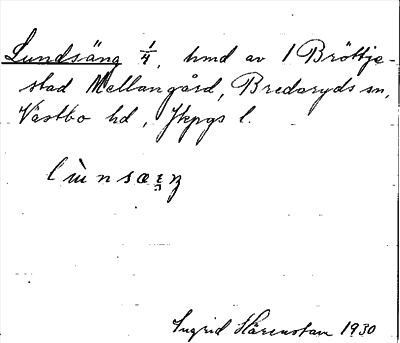 Lundsäng 1/4, hmd av 1 Bröttje-
stad Mellangård, Bredaryds sn,
Västbo hd, Jkpgs l.
Ingrid Härenstam 1930